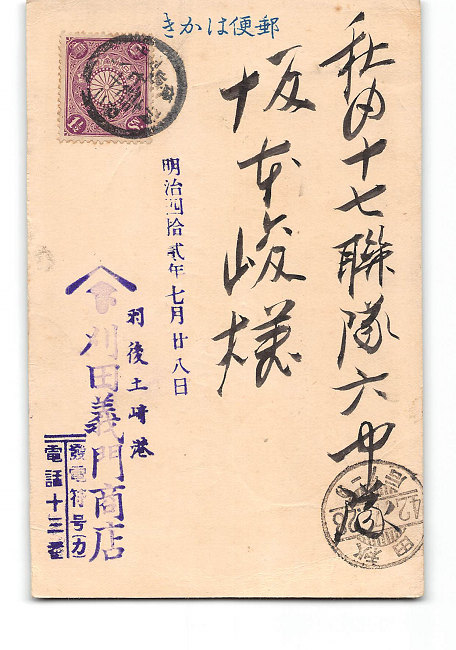 きかは便郵
秋田十七聯隊六中隊
坂本峻様
明治四拾貳年七月廿八日
羽後土崎港
刈田義門商店
發電符号(カ)
電話十三番
1½
秋田
42